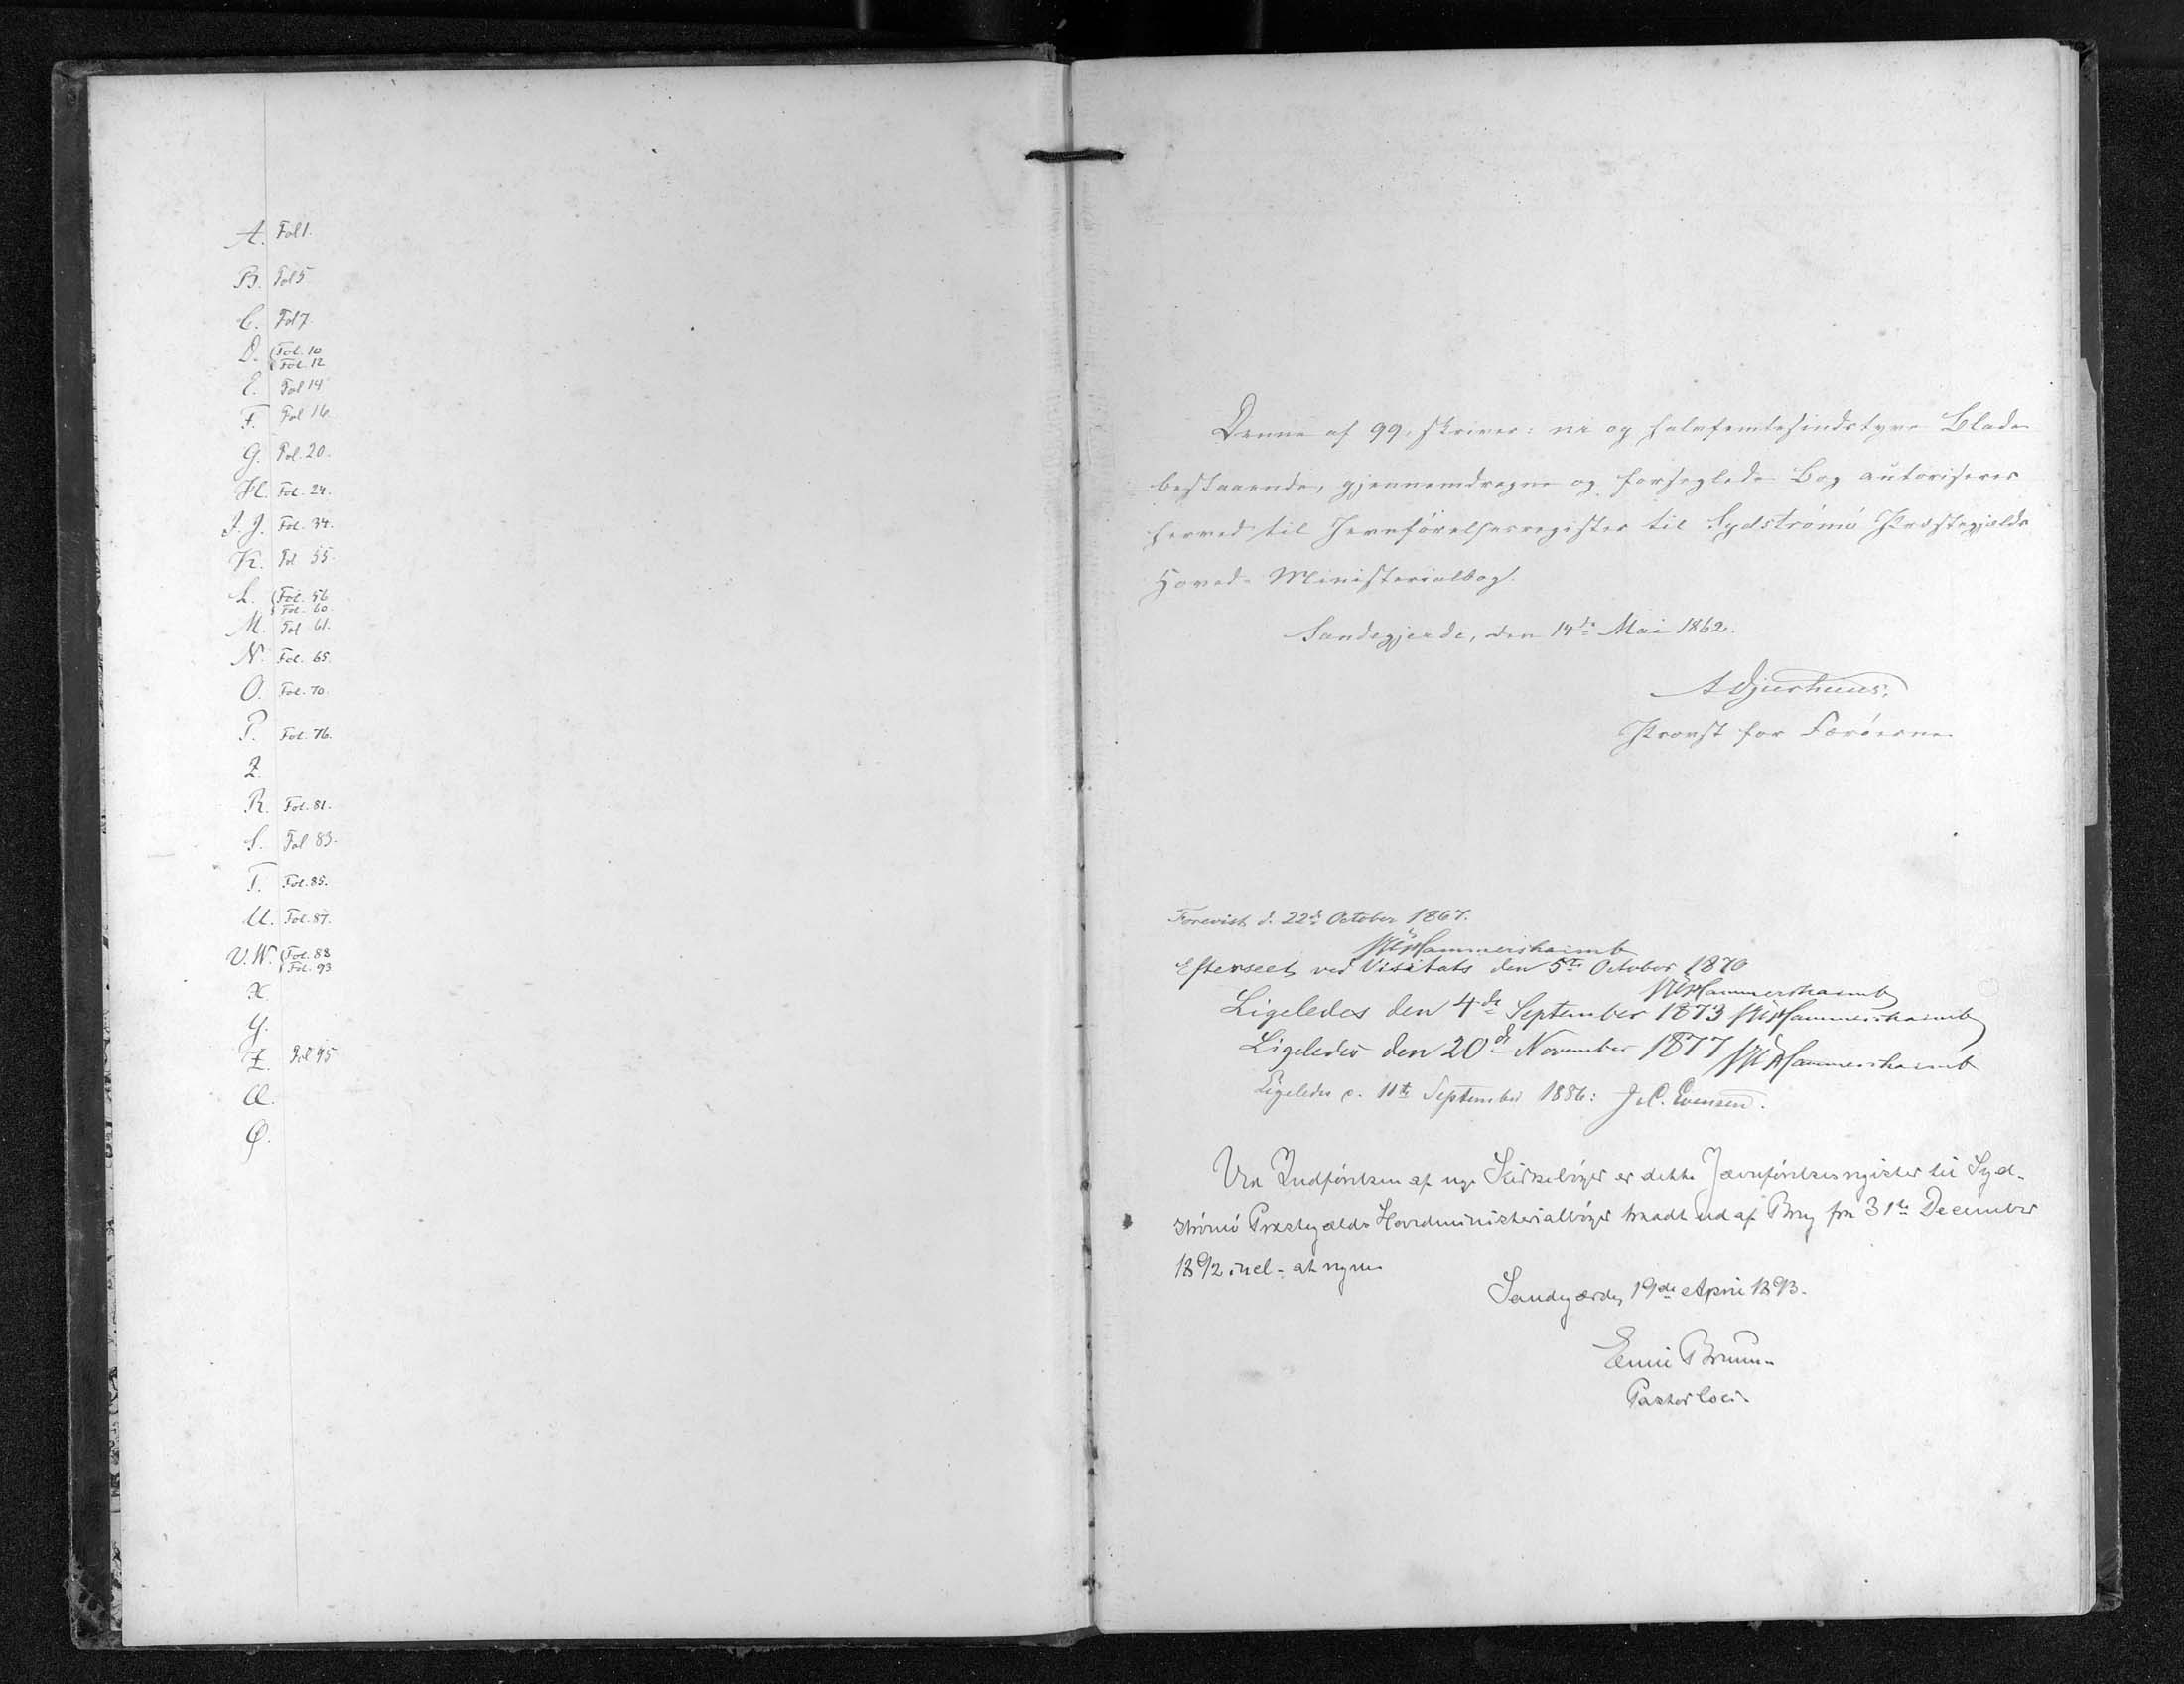 A. Fol 1.
B. Fol 5
C. Fol 7.
D. Fol. 10
Fol. 12
E. Fol 14
F. Fol 16.
G. Fol. 20.
H. Fol. 24.
I. J. Fol. 34.
K. Fol 55.
L. Fol. 56
Fol. 60.
M. Fol 61.
N. Fol. 65.
O. Fol. 70.
P. Fol. 76.
Q.
R. Fol. 81.
S. Fol 83.
T. Fol. 85.
U. Fol. 87.
V. W. Fol. 88
Fol. 93
X.
Y.
Z. Fol 95
Æ.
Ø.
Denne af 99, skriver: ni og halvfemtesindstyve Blade
bestaaende, gjennemdragne og forseglede Bog autoriseres
herved til Jevnførelsesregister til Sydstrømø Præstegjælds
Hoved-Ministerialbog.
Sandegjerde, den 14de Mai 1862.
A Djurhuus,
Provst for Færøerne
Forevist d. 22de October 1867.
VUHammershaimb
Efterseet ved Visitats den 5te October 1870
VUHammershaimb
Ligeledes den 4de September 1873 VUHammershaimb
Ligeledes den 20de November 1877 VUHammershaimb
Ligeledes d. 11te September 1886: J. C. Evensen.
Ved Indførelsen af nye Kirkebøger er dette Jævnførelsesregister til Syd-
strømø Præstegælds Hovedministerialbøger traadt ud af Brug fra 31te December
1892 incl. at regne
Sandegærde, 19de April 1893.
Emil Bruun
Pastor loci.